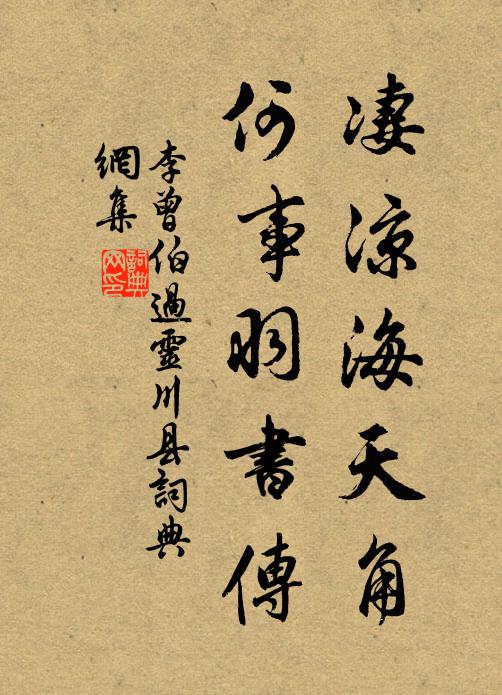 凄凉海天角
何事羽書傳
李曾伯過靈川县詞典
網集
詞典网印